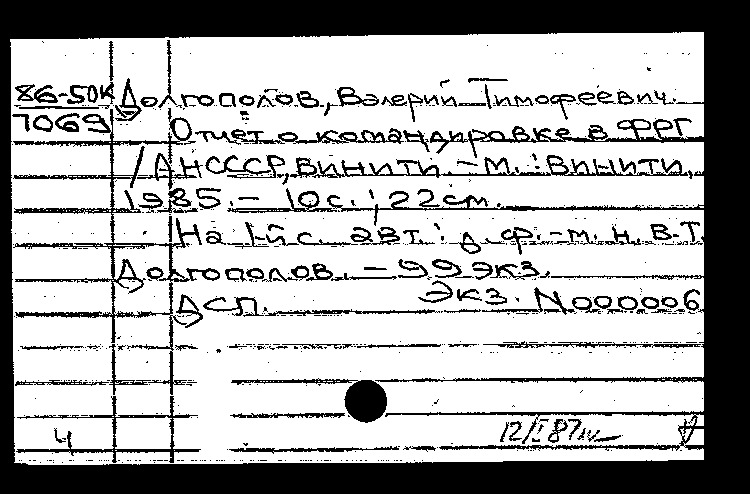 86-50К Долгополов, Валерий Тимофеевич.
7069 Отчет о командировке в ФРГ
/ АН СССР, ВИНИТИ. - М. : ВИНИТИ,
1985. - 10 с. ; 22 см.
На 1-й с. авт.: д. ф.-м. н. В.Т.
Долгополов. - 99 экз.
ДСП. Экз. N000006
4 12/I 87